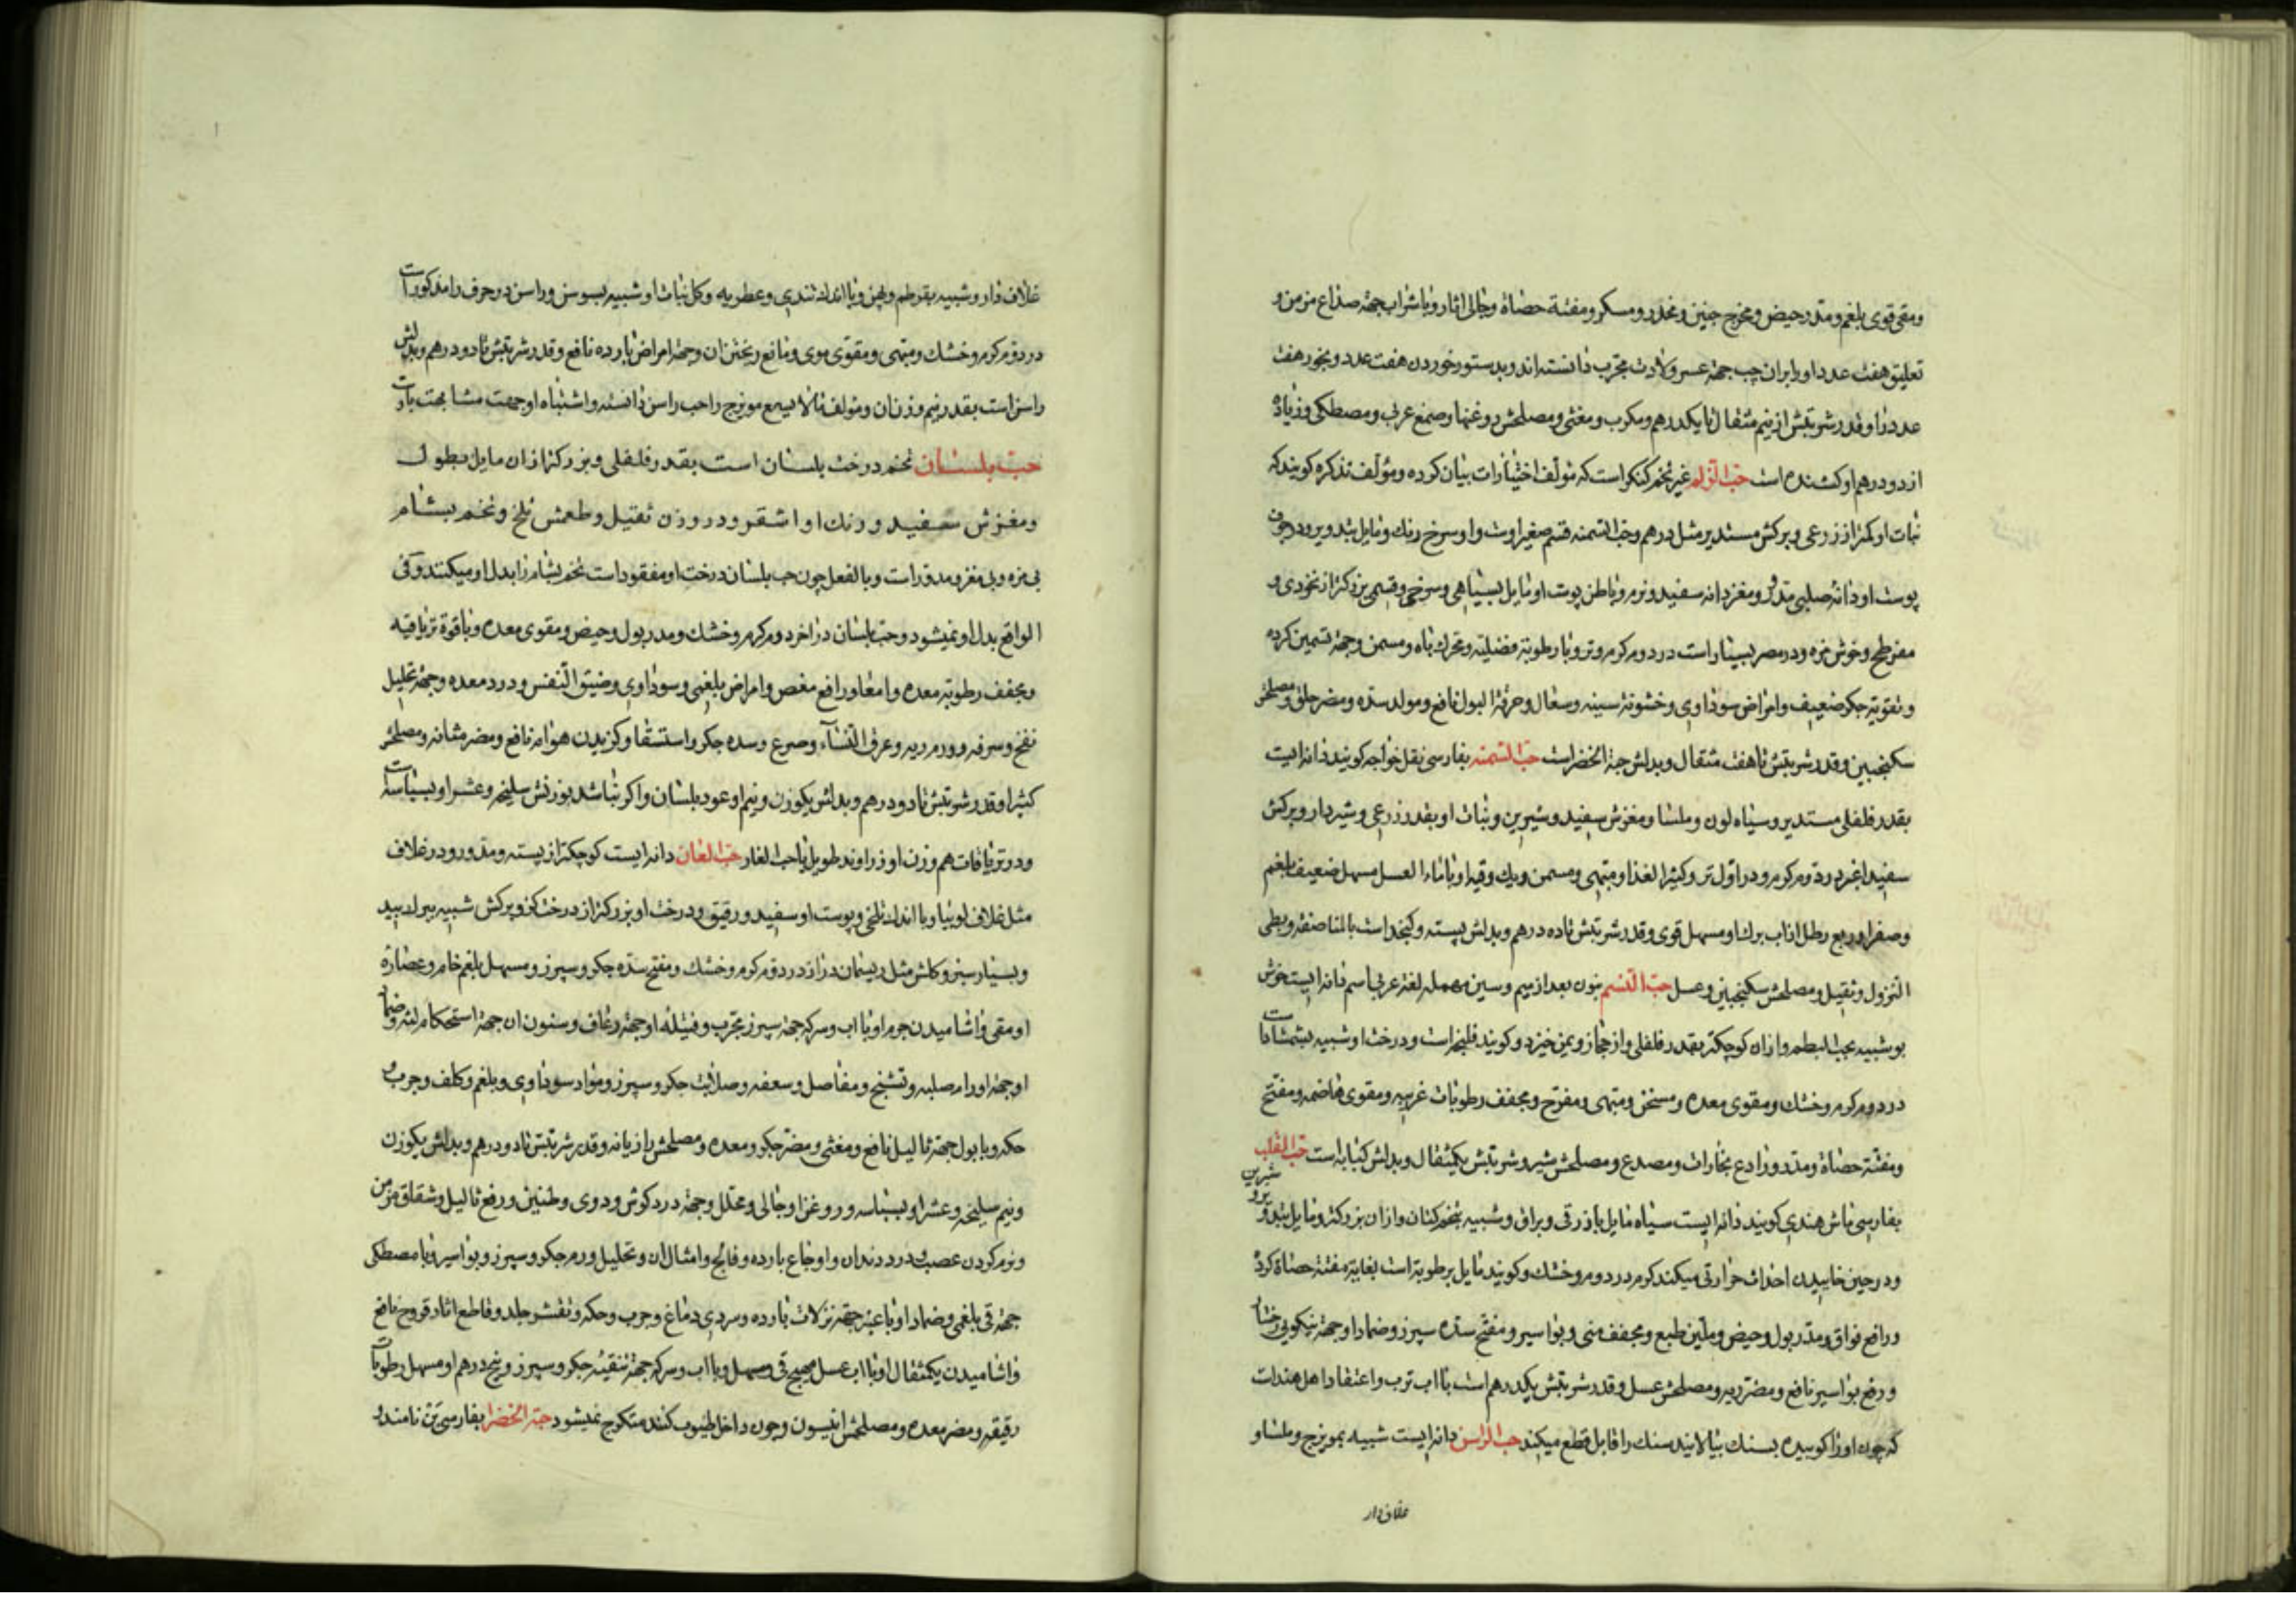 ومقی قوی بلغم ومدر حیض ومخرج جنین ومخدر ومسکر ومفتة حصاة وجالی اثار وبا شراب جهة صداع مزمن و
تعلیق هفت عدد او بر ران چپ جهة عسر ولادت مجرب دانسته اند وبدستور خوردن هفت عدد وبخور هفت
عدد را وقدر شربتش از نیم مثقال تا یکدرهم ومکرب ومغثی ومصلحش روغنها وصمغ عربی ومصطکی وزیاده
از دو درهم او کشنده است حب الزلم غیر تخم کنکر است که مؤلف اختیارات بیان کرده ومؤلف تذکره کویند که
نبات او کمتر از زرعی وبرکش مستدیر مثل درهم وحب السمنه قسم صغیر اوست واو سرخ رنك ومایل بتدویر ودر جوف
پوست او دانه صلبی مدور ومغز دانه سفید ونرم وباطن پوت او مایل بسیاهی وسرخی وقسمی بزرکتر از نخودی و
مفرطح وخوش مزه ودر مصر بسیار است در دوم کرم وتر وبا رطوبة فضلیه ومحرك باه ومسمن وجهة تسمین کرده
وتقویة جکر ضعیف وامراض سوداوی وخشونة سینه وسعال وحرقة البول نافع ومولد سده ومضر حلق ومصلحش
سکنجبین وقدر شربتش تا هفت مثقال وبدلش حبة الخضر است حب السمنه بفارسی نقل خواجه کویند دانه ایست
بقدر فلفلی مستدیر وسیاه لون وملسا ومغزش سفید وشیرین ونبات او بقدر زرعی وشیردار وبرکش
سفید اغبر در دوم کرم ودر اول تر وکثیر الغذا ومبهی ومسمن ویك وقیه او با ماء العسل مسهل ضعیف بلغم
وصفرا وربع رطل از اب برك او مسهل قوی وقدر شربتش تا ده درهم وبدلش پسته وکنجد است بالمناصفه وبطی
النزول وثقیل ومصلحش سکنجبین وعسل حب النسم بنون بعد از میم وسین مهمله لغة عربی اسم دانه ایست خوش
بو شبیه بحب البطم وازان کوچکتر بقدر فلفلی واز حجاز ویمن خیزد وکویند فلنجه است ودرخت او شبیه بشمشادات
در دوم کرم وخشك ومقوی معده ومسخن ومبهی ومفرح ومجفف رطوبات غریبه ومقوی هاضمه ومفتح
ومفتة حصاة ومدر ورادع بخارات ومصدع ومصلحش شیر وشربتش یکمثقال وبدلش کبابه است حب القلب
بفارسی ماش هندی کویند دانه ایست سیاه مایل بازرقی وبراق وشبیه بتخم کتان وازان بزرکتر ومایل بتدویر شیرین
ودر حین خاییدن احداث حرارتی میکند کرم در دوم وخشك وکویند مایل برطوبة است بغایة مفتة حصاة کرده
ورافع فواق ومدر بول وحیض وملین طبع ومجفف منی وبواسیر ومفتح سده سپرز وضماد او جهة نیکویی رخسار
ورفع بواسیر نافع ومضر ریه ومصلحش عسل وقدر شربتش یکدرهم است با اب ترب واعتقاد اهل هند است
که چون او را کوبیده بسنك بیالایند سنك را قابل قطع میکند حب الراسن دانه ایست شبیه بمویزج وملسا و
غلاف دار
غلاف دار وشبیه بقرطم وپهن وبا اندك تندی وعطریه وکل نبات او شبیه بسوسن وراسن در حرف را مذکور است
در دوم کرم وخشك ومبهی ومقوی موی ومانع ریختن ان وجهة امراض بارده نافع وقدر شربتش تا دو درهم وبدلش
راسن است بقدر نیم وزن ان ومؤلف مالا یسع مویزج را حب راسن دانسته واشتباه او جهت مشابهت بارت
حب بلسان تخم درخت بلسان است بقدر فلفلی وبزرکتر ازان مایل بطول
ومغزش سفید ورنك او اشقر ودر وزن ثقیل وطعمش تلخ وتخم بشام
بی مزه وبی مغز ومدور است وبالفعل چون حب بلسان درخت او مفقود است تخم بشام را بدل او میکنند وفی
الواقع بدل او نمیشود وحب بلسان در اخر دوم کرم وخشك ومدر بول وحیض ومقوی معده وبا قوة تریاقیه
ومجفف رطوبة معده وامعا ورافع مغص وامراض بلغمی وسوداوی وضیق النفس ودرد معده وجهة تحلیل
نفخ وسرفه وورم ریه وعرق النساء وصرع وسده جکر واستسقا وکزیدن هوام نافع ومضر مثانه ومصلحش
کثیرا وقدر شربتش تا دو درهم وبدلش یکوزن ونیم او عود بلسان واکر نباشد بوزنش سلیخه وعشر او بسباسه است
ودر تریاقات هم وزن او زراوند طویل یا حب الغار حب البان دانه ایست کوچکتر از پسته ومدور ودر غلاف
مثل غلاف لوبیا وبا اندك تلخی وپوست او سفید ورقیق ودرخت او بزرکتر از درخت کز وبرکش شبیه ببرك بید
وبسیار سبز وکلش مثل ریسمان دراز در دوم کرم وخشك ومفتح سده جکر وسپرز ومسهل بلغم خام وعصاره
او مقی واشامیدن جرم او با اب وسرکه جهة سپرز مجرب وفتیله او جهة رعاف وسنون ان جهة استحکام لثه وضماد
او جهة اورام صلبه وتشنج ومفاصل وسعفه وصلابت جکر وسپرز ومواد سوداوی وبلغم وکلف وجرب و
حکه وبا بول جهة ثالیل نافع ومغثی ومضر جکر ومعده ومصلحش رازیانه وقدر شربتش تا دو درهم وبدلش یکوزن
ونیم سلیخه وعشر او بسباسه وروغن او جالی ومحلل وجهة درد کوش ودوی وطنین ورفع ثالیل وشقاق مزمن
ونرم کردن عصب ودرد دندان واوجاع بارده وفالج وامثال ان وتحلیل ورم جکر وسپرز وبواسیر وبا مصطکی
جهة قی بلغمی وضماد او با عنبر جهة نزلات بارده وسردی دماغ وجرب وحکه وتقشر جلد وقاطع اثار قروح نافع
واشامیدن یکمثقال او با اب عسل مهیج قی ومسهل وبا اب وسرکه جهة تنقیه جکر وسپرز وپنج درهم او مسهل رطوبات
رقیقه ومضر معده ومصلحش انیسون وچون داخل طیوب کنند متکرج نمیشود حبة الخضرا بفارسی بن نامند و